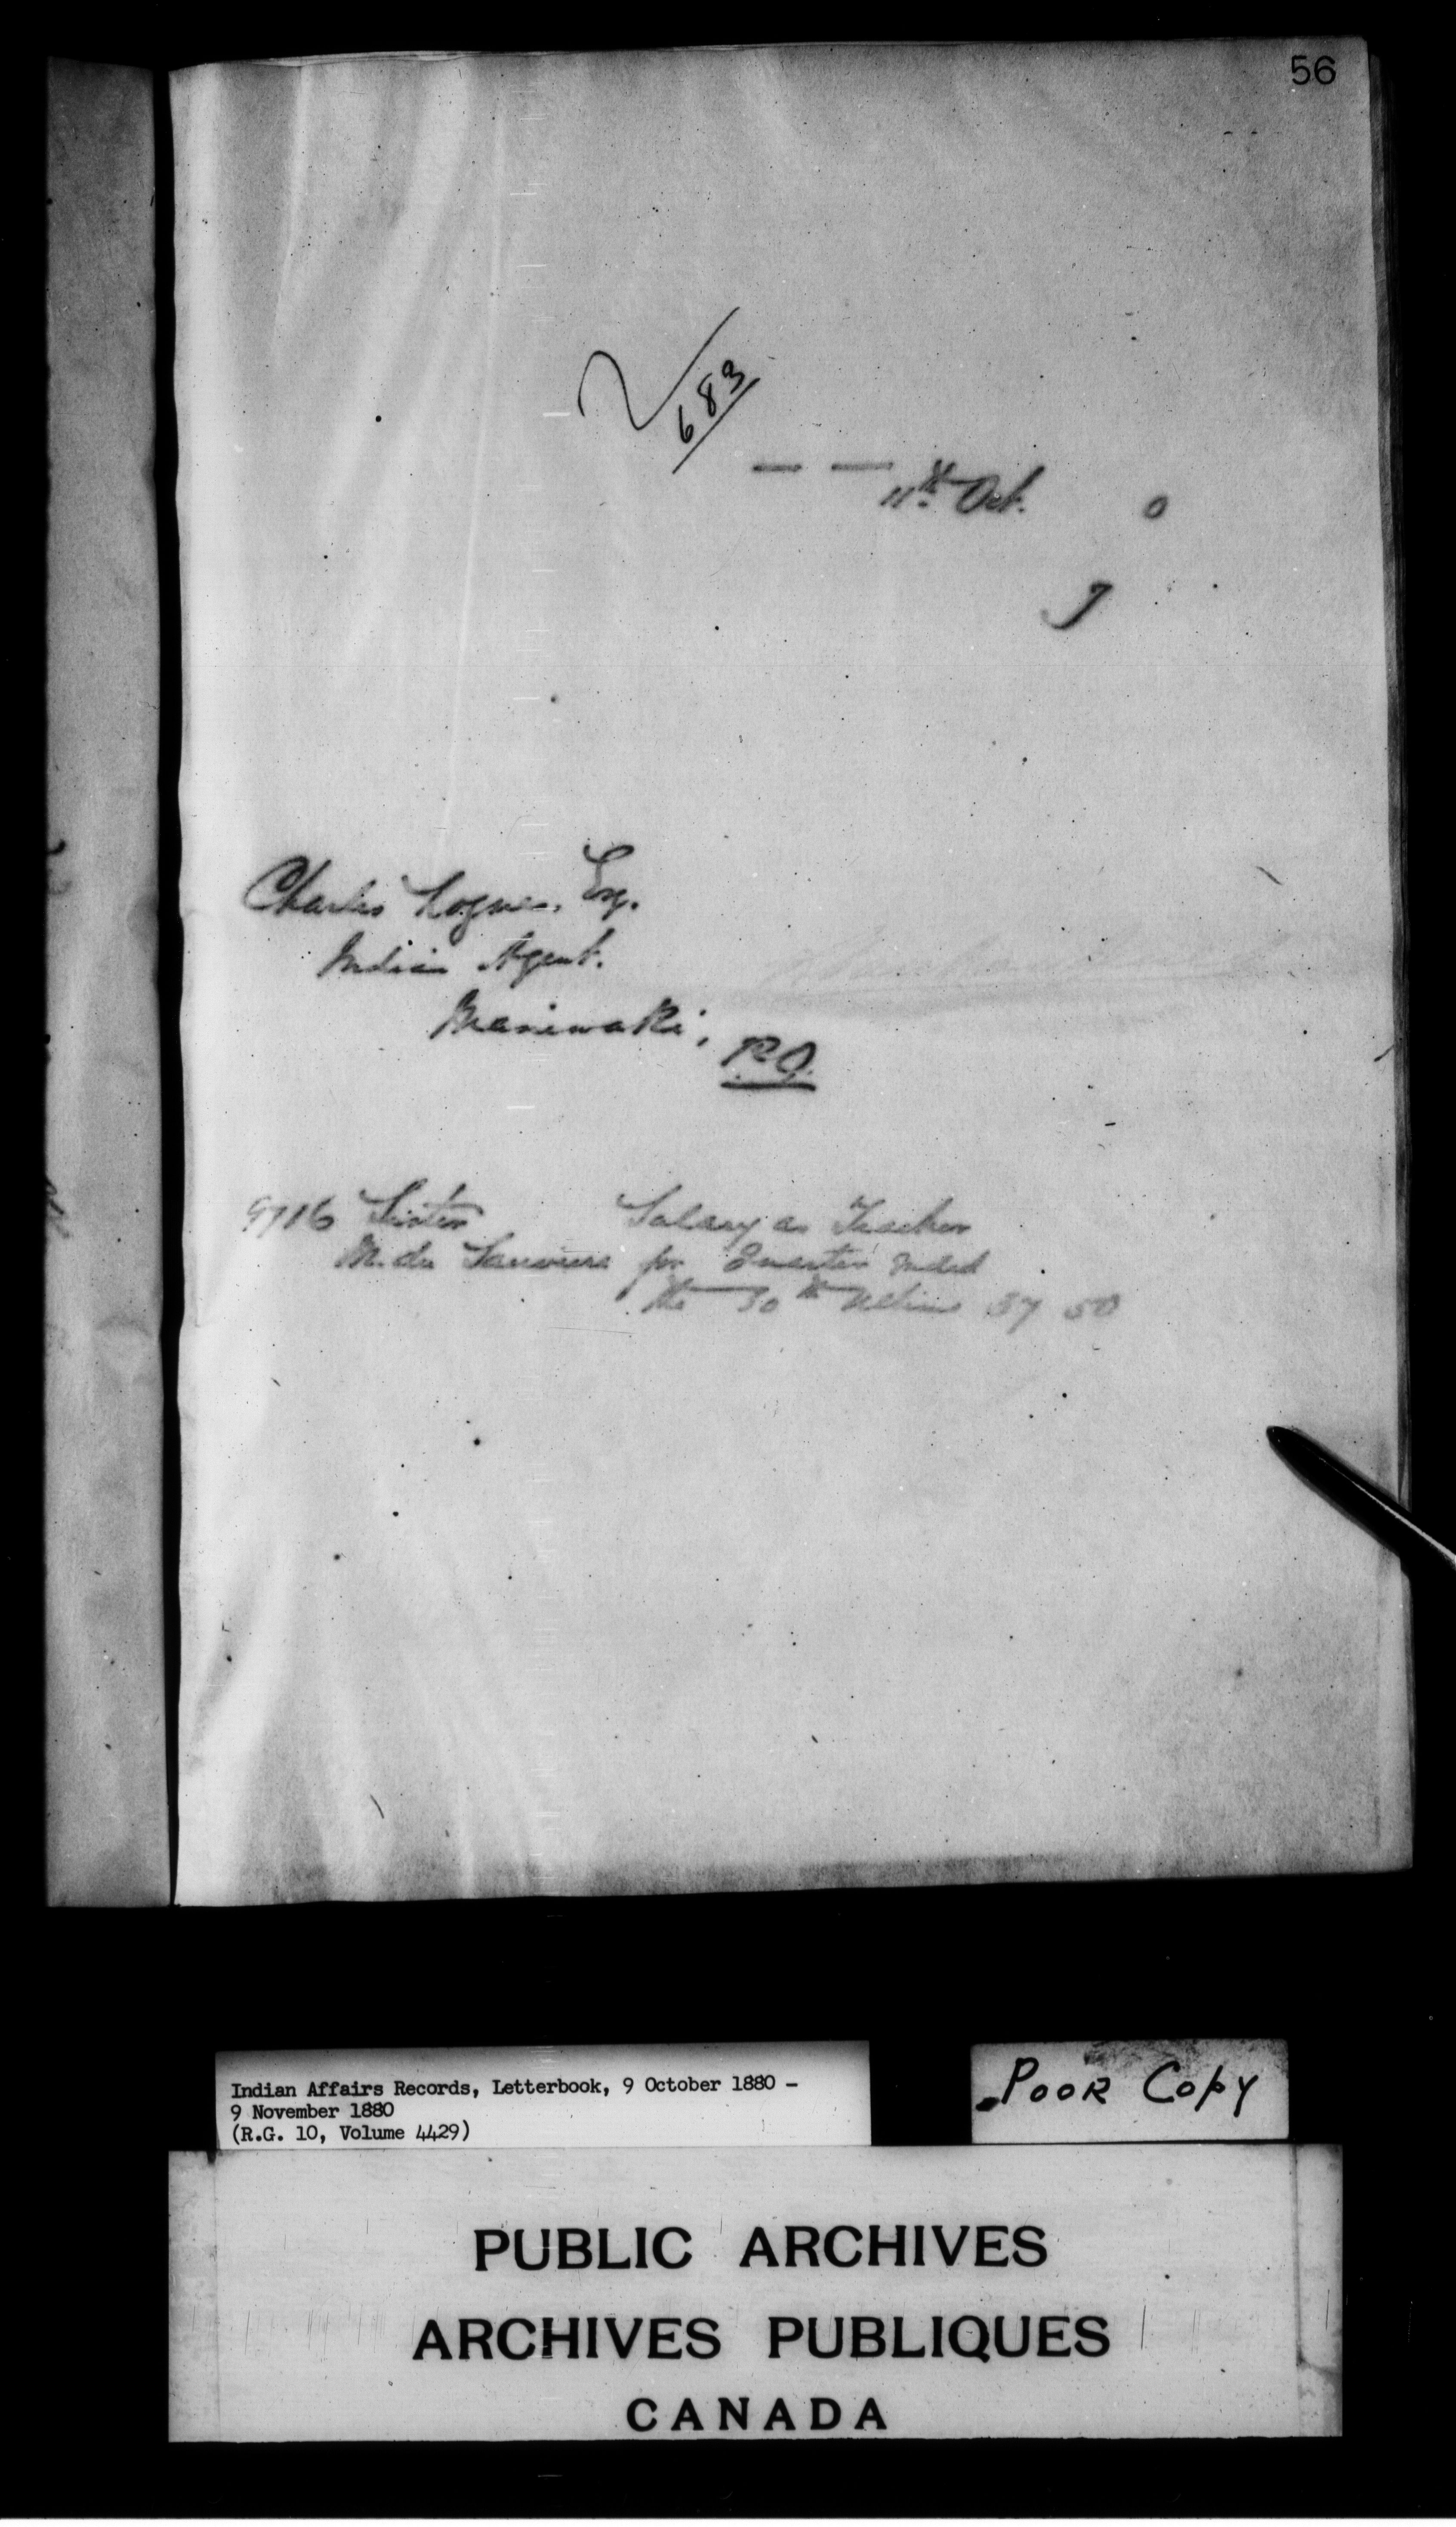 56
2/683
11th Oct. 0
J
Charles Logue, Esq.
Indian Agent.
Maniwaki,
P.Q.
9716 Sister Salary as Teacher
M. du Sauveur for Quarter ended
the 30th Ultimo 37 50
Indian Affairs Records, Letterbook, 9 October 1880 –
9 November 1880
(R.G. 10, Volume 4429)
POOR COPY
PUBLIC ARCHIVES
ARCHIVES PUBLIQUES
CANADA